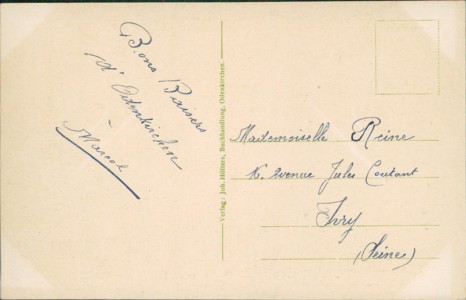 Bons Baisers
d'Odenkirchen
Marcel
Verlag: Joh. Hölters, Buchhandlung, Odenkirchen.
Mademoiselle Reine
16. Avenue Jules Coutant
Ivry
(Seine)